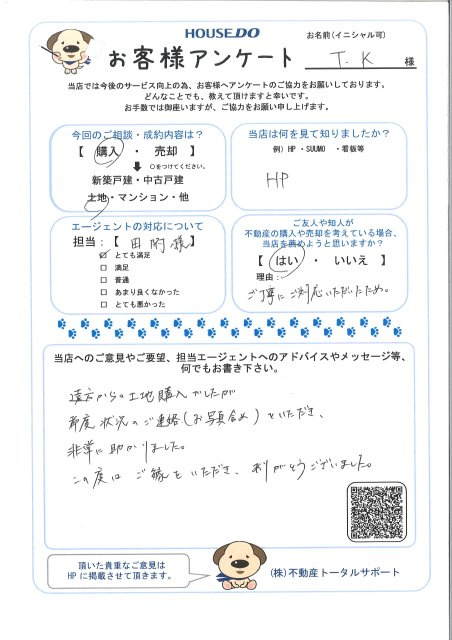 HOUSEDO
お名前(イニシャル可)
お客様アンケート
T. K 様
当店では今後のサービス向上の為、お客様へアンケートのご協力をお願いしております。
どんなことでも、教えて頂けますと幸いです。
お手数では御座いますが、ご協力をお願い申し上げます。
今回のご相談・成約内容は?
【 購入 ・ 売却 】
○をつけてください。
新築戸建・中古戸建
土地・マンション・他
当店は何を見て知りましたか?
例) HP ・ SUUMO ・看板等
HP
エージェントの対応について
担当:【 田 様 】
とても満足
満足
普通
あまり良くなかった
とても悪かった
ご友人や知人が
不動産の購入や売却を考えている場合、
当店を薦めようと思いますか?
【 はい ・ いいえ 】
理由:
ご丁寧にご対応いただいたため。
当店へのご意見やご要望、担当エージェントへのアドバイスやメッセージ等、
何でもお書き下さい。
遠方からの土地購入でしたが
都度状況のご連絡(お写真含め)をいただき、
非常に助かりました。
この度は ご縁をいただき、ありがとうございました。
頂いた貴重なご意見は
HPに掲載させて頂きます。
(株)不動産トータルサポート